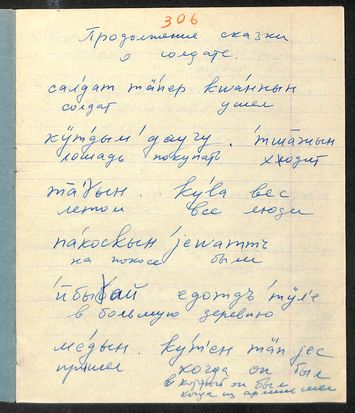 306
Продолжение сказки
о солдате.
салдат тӓпер кwӓннын
солдат ушел
кӱтдым' даугу. 'тшӓҗын
лошадь покупать ходит
тӓɣын. ку́ла вес
летом все люди
па́коскын 'jеwаттъ
на покосе были
едотдъ 'тӱl'е
в большую деревню
ме́дын. ку́тен тӓп jес
пришел когда он был
в который он был
когда из армии шел